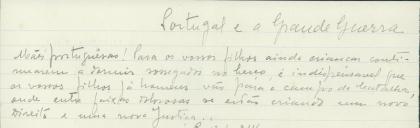 Portugal e a Grande Guerra
Mães portuguêsas! Para os vossos filhos ainda crianças conti-
nuarem a dormir socegados no berço, é indispensavel que
os vossos filhos já homens vão para o campo da batalha,
onde entre faixas dolorosas se estão criando um novo
Direito e uma nova Justiça...